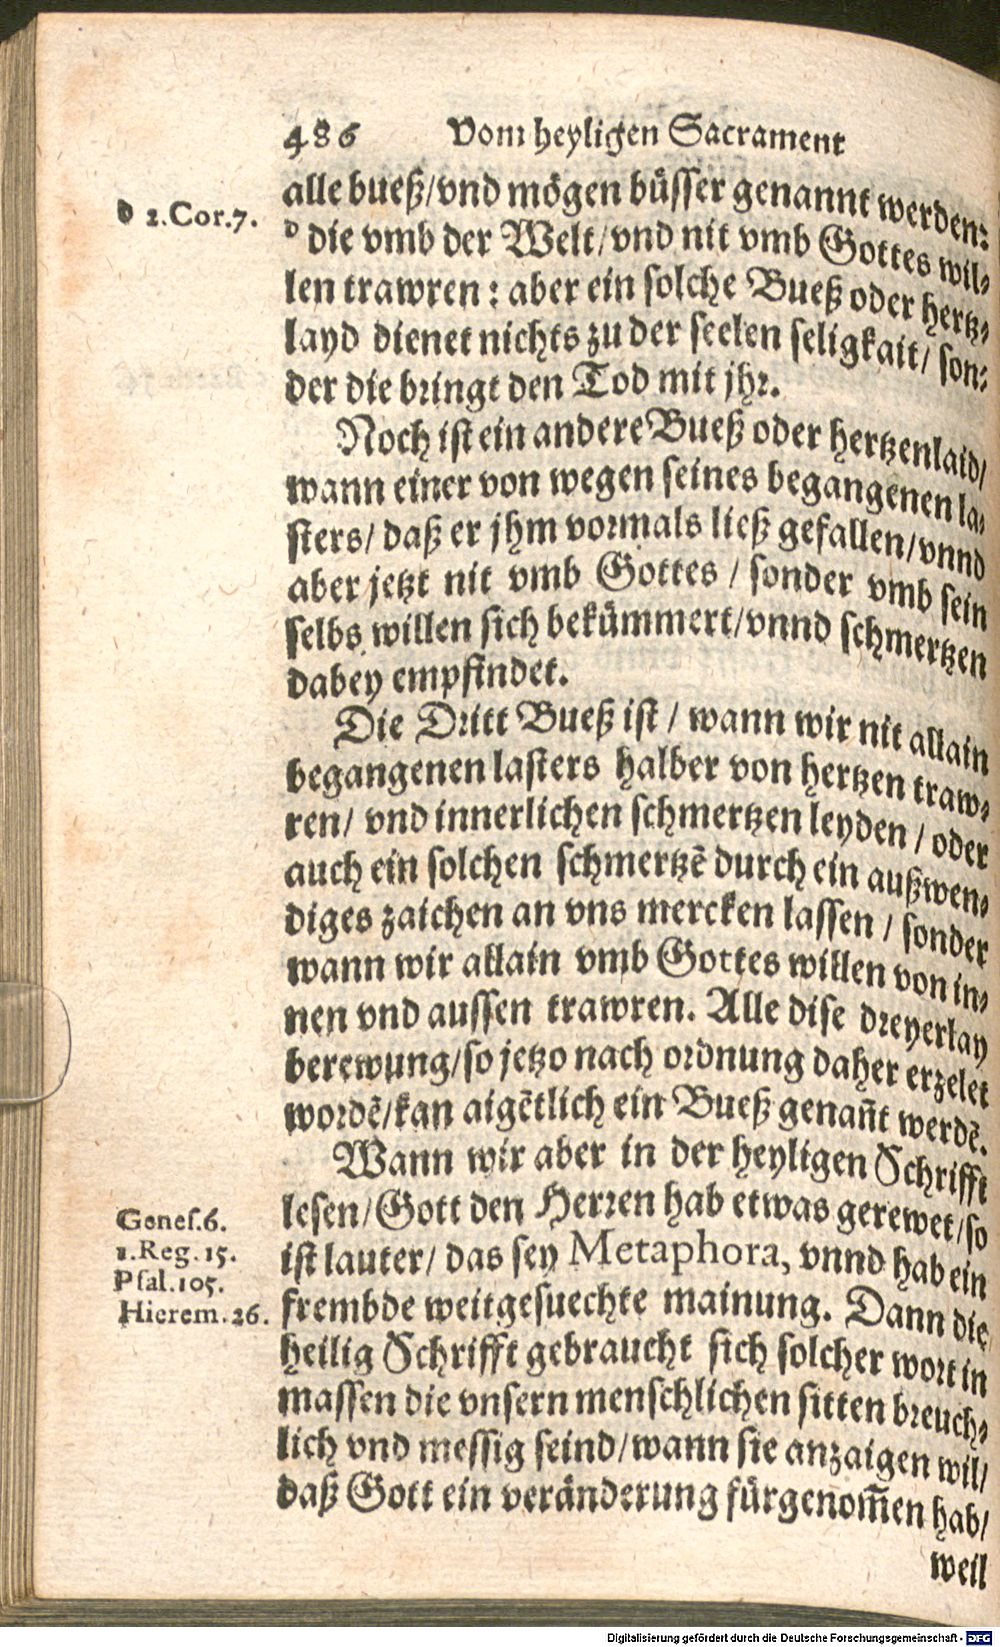 486 Vom heyligen Sacrament
alle bueß/vnd mögen büsser genannt werden:
d 2.Cor.7.
d die vmb der Welt/vnd nit vmb Gottes wil-
len trawren: aber ein solche Bueß oder hertz-
layd dienet nichts zu der seelen seligkait/ son-
der die bringt den Tod mit jhr.
Noch ist ein andere Bueß oder hertzenlaid/
wann einer von wegen seines begangenen la-
sters/ daß er jhm vormals ließ gefallen/vnnd
aber jetzt nit vmb Gottes / sonder vmb sein
selbs willen sich bekümmert/vnnd schmertzen
dabey empfindet.
Die Dritt Bueß ist / wann wir nit allain
begangenen lasters halber von hertzen traw-
ren/ vnd innerlichen schmertzen leyden / oder
auch ein solchen schmertzē durch ein außwen-
diges zaichen an vns mercken lassen / sonder
wann wir allain vmb Gottes willen von in-
nen vnd aussen trawren. Alle dise dreyerlay
berewung/so jetzo nach ordnung daher erzelet
wordē/kan aigētlich ein Bueß genañt werdē.
Wann wir aber in der heyligen Schrifft
Genes.6.
lesen/Gott den Herren hab etwas gerewet/so
1.Reg.15.
ist lauter/ das sey Metaphora, vnnd hab ein
Psal.105.
Hierem.26.
frembde weitgesuechte mainung. Dann die
heilig Schrifft gebraucht sich solcher wort in
massen die vnsern menschlichen sitten breuch-
lich vnd messig seind/wann sie anzaigen wil/
daß Gott ein veränderung fürgenom̃en hab/
weil
Digitalisierung gefördert durch die Deutsche Forschungsgemeinschaft - DFG